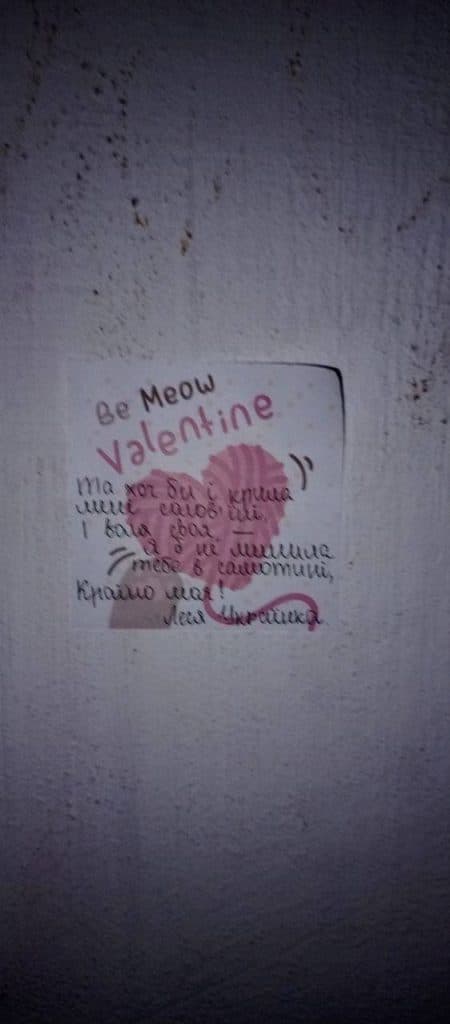 Be Meow
Valentine
Та хоч би і крила
мені солов'їні,
І воля своя, —
я б не лишила
тебе в самотині,
Країно моя!
Леся Українка